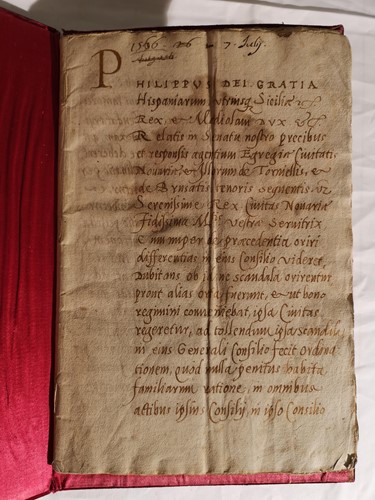 1560 26 7 Julij
Augusti
PHILIPPUS DEI GRATIA
Hispaniarum utriusq Siciliæ
Rex, & Mediolani DUX
Relatis in Senatu nostro precibus
et responsis agentium Egregiæ Civitatis
Novariæ, & Illorum de Torniellis, &
de Brusatis tenoris Sequentis
Serenissime Rex Civitas Novariæ
Fidissima M.tis Vestræ Servitrix
Cum super præcedentia oriri
differentias in eius Consilio videret
Dubitans ob scandala orirentur
pront alias orta fuerint, & ut bono
regimini conveniebat, ipsa Civitas
regeretur, ad tollendum ipsa scandala
in eius Generali Consilio fecit Ordina
tionem, quod nulla penitus habita
familiarum ratione, in omnibus
actibus ipsius Consilij, in ipso Consilio